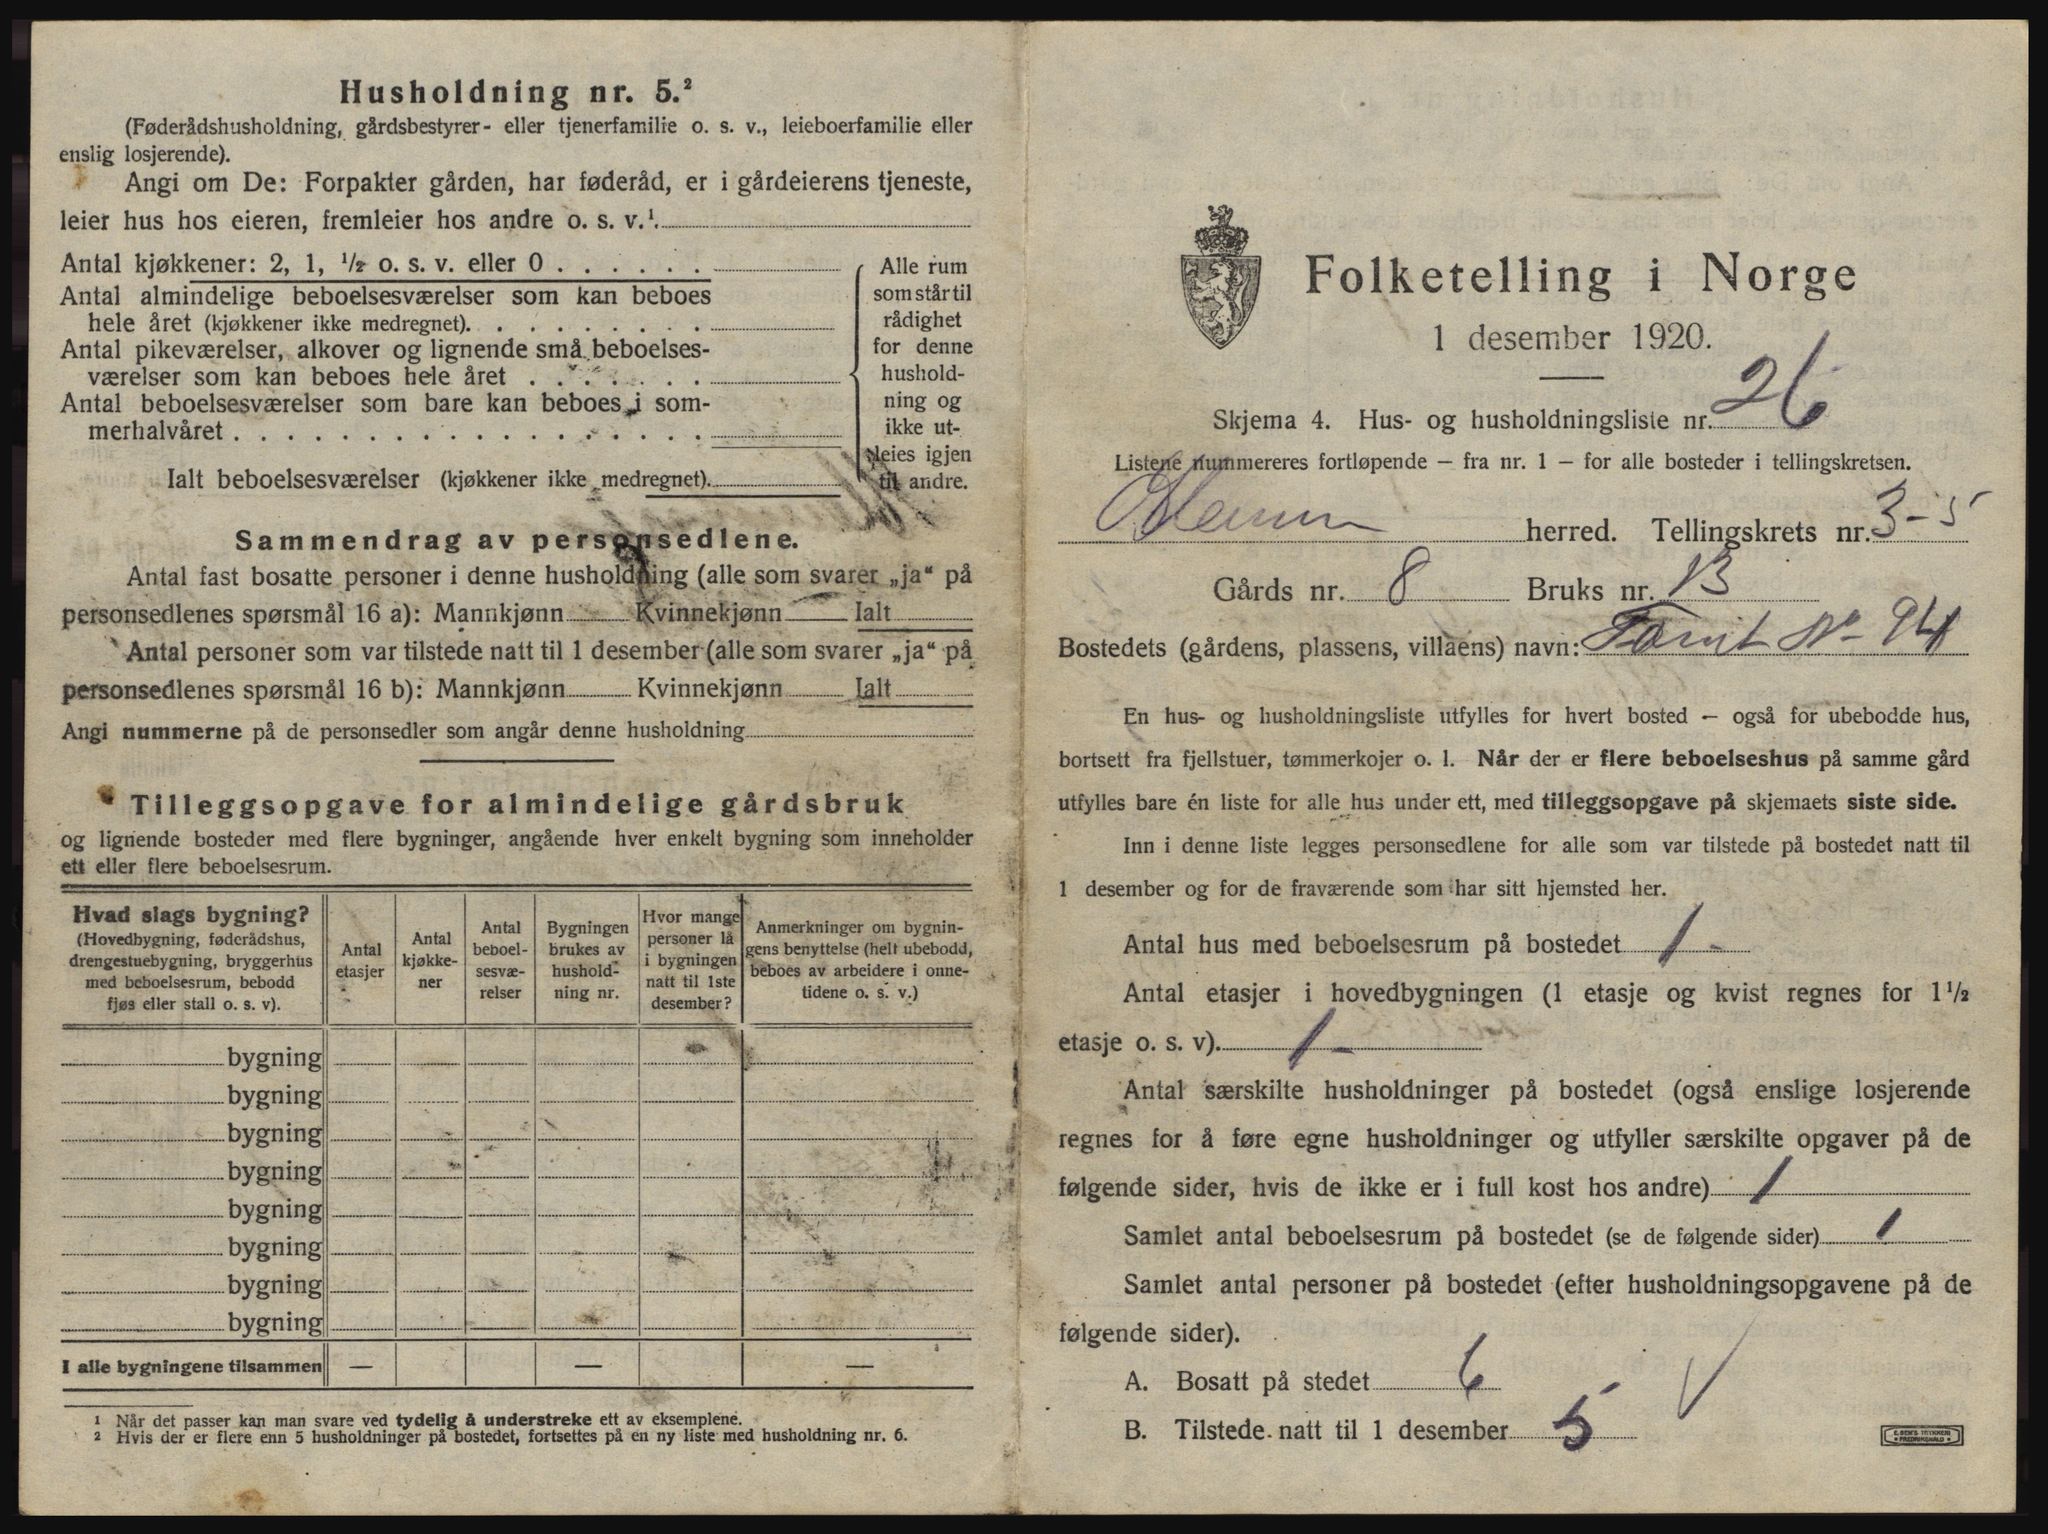 Husholdning nr. 5.²
(Føderådshusholdning, gårdsbestyrer- eller tjenerfamilie o. s. v., leieboerfamilie eller
enslig losjerende).
Angi om De: Forpakter gården, har føderåd, er i gårdeierens tjeneste,
leier hus hos eieren, fremleier hos andre o. s. v.¹.
Antal kjøkkener: 2, 1, ½ o. s. v. eller 0 . . . . . .
Antal almindelige beboelsesværelser som kan beboes
hele året (kjøkkener ikke medregnet). . . . . . . . .
Antal pikeværelser, alkover og lignende små beboelses-
værelser som kan beboes hele året . . . . . . .
Antal beboelsesværelser som bare kan beboes i som-
merhalvåret . . . . . . . . . . . . . . . . . .
Ialt beboelsesværelser (kjøkkener ikke medregnet).
Alle rum
som står til
rådighet
for denne
hushold-
ning og
ikke ut-
leies igjen
til andre.
Sammendrag av personsedlene.
Antal fast bosatte personer i denne husholdning (alle som svarer „ja“ på
personsedlenes spørsmål 16 a): Mannkjønn Kvinnekjønn Ialt
Antal personer som var tilstede natt til 1 desember (alle som svarer „ja“ på
personsedlenes spørsmål 16 b): Mannkjønn Kvinnekjønn Ialt
Angi nummerne på de personsedler som angår denne husholdning
Tilleggsopgave for almindelige gårdsbruk
og lignende bosteder med flere bygninger, angående hver enkelt bygning som inneholder
ett eller flere beboelsesrum.
Hvad slags bygning?
(Hovedbygning, føderådshus,
drengestuebygning, bryggerhus
med beboelsesrum, bebodd
fjøs eller stall o. s. v).
Antal
etasjer
Antal
kjøkke-
ner
Antal
beboel-
sesvæ-
relser
Bygningen
brukes av
hushold-
ning nr.
Hvor mange
personer lå
i bygningen
natt til 1ste
desember?
Anmerkninger om bygnin-
gens benyttelse (helt ubebodd,
beboes av arbeidere i onne-
tidene o. s. v.)
bygning
bygning
bygning
bygning
bygning
bygning
bygning
bygning
I alle bygningene tilsammen — — —
¹ Når det passer kan man svare ved tydelig å understreke ett av eksemplene.
² Hvis der er flere enn 5 husholdninger på bostedet, fortsettes på en ny liste med husholdning nr. 6.
Folketelling i Norge
1 desember 1920.
Skjema 4. Hus- og husholdningsliste nr. 26
Listene nummereres fortløpende – fra nr. 1 – for alle bosteder i tellingskretsen.
herred. Tellingskrets nr. 3-5
Gårds nr. 8 Bruks nr. 13
Bostedets (gårdens, plassens, villaens) navn: Tomt No 94
En hus- og husholdningsliste utfylles for hvert bosted – også for ubebodde hus,
bortsett fra fjellstuer, tømmerkojer o. l. Når der er flere beboelseshus på samme gård
utfylles bare én liste for alle hus under ett, med tilleggsopgave på skjemaets siste side.
Inn i denne liste legges personsedlene for alle som var tilstede på bostedet natt til
1 desember og for de fraværende som har sitt hjemsted her.
Antal hus med beboelsesrum på bostedet 1 -
Antal etasjer i hovedbygningen (1 etasje og kvist regnes for 1½
etasje o. s. v). 1 -
Antal særskilte husholdninger på bostedet (også enslige losjerende
regnes for å føre egne husholdninger og utfyller særskilte opgaver på de
følgende sider, hvis de ikke er i full kost hos andre) 1
Samlet antal beboelsesrum på bostedet (se de følgende sider) 1
Samlet antal personer på bostedet (efter husholdningsopgavene på de
følgende sider).
A. Bosatt på stedet 6
B. Tilstede natt til 1 desember 5
E. SEM'S TRYKKERI
FREDRIKSHALD